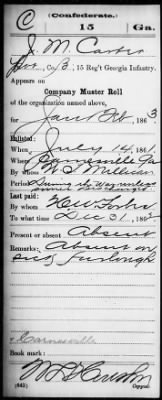 C
(Confederate.)
15 Ga.
J. M. Carter
Pvt., Co. B., 15 Reg't Georgia Infantry.
Appears on
Company Muster Roll
of the organization named above,
for Jan & Feb, 1863.
Enlisted:
When July 14, 1861
Where Carnesville Ga
By whom W. T. Millican
Period During the War unless
Last paid:
By whom
To what time Dec 31, 1862
Present or absent Absent
Remarks: Absent on
sick furlough
Carnesville
Book mark:
(642) Copyist.